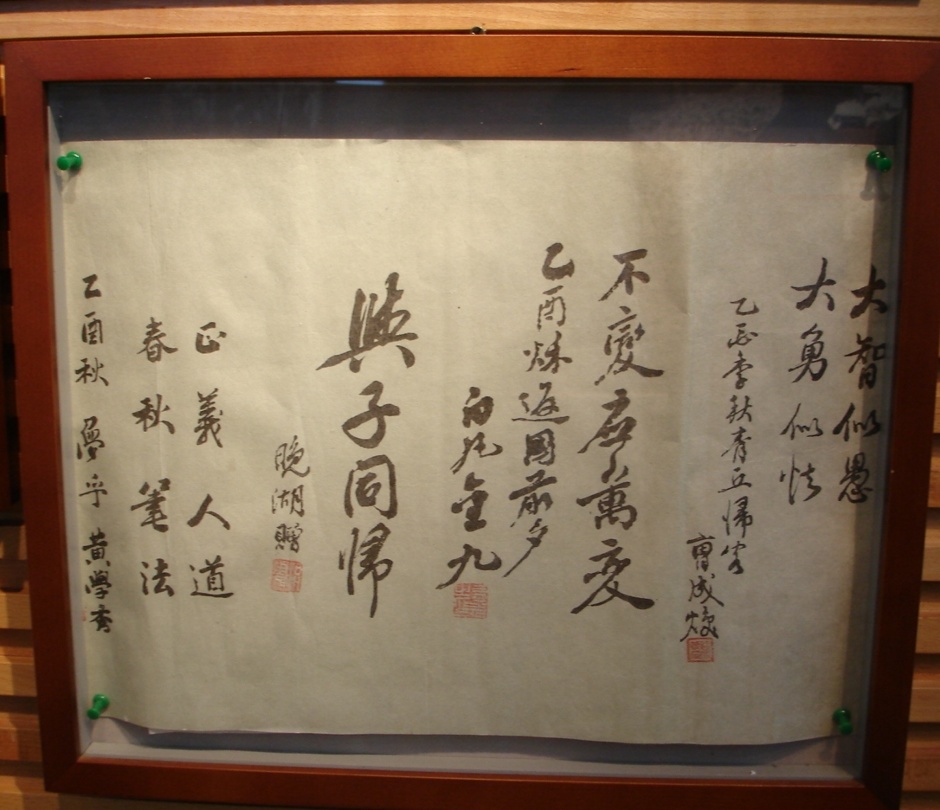 大智似愚
大勇似怯
乙酉季秋青丘歸客
曺成煥
不變応萬変
乙酉秌返國前夕
白凡金九
與子同歸
晩湖贈
正義人道
春秋筆法
乙酉秋 夢乎 黄學秀